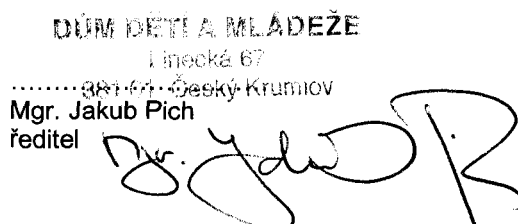 DŮM DĚTÍ A MLÁDEŽE
Linecká 67
381 01 Český Krumlov
Mgr. Jakub Pich
ředitel